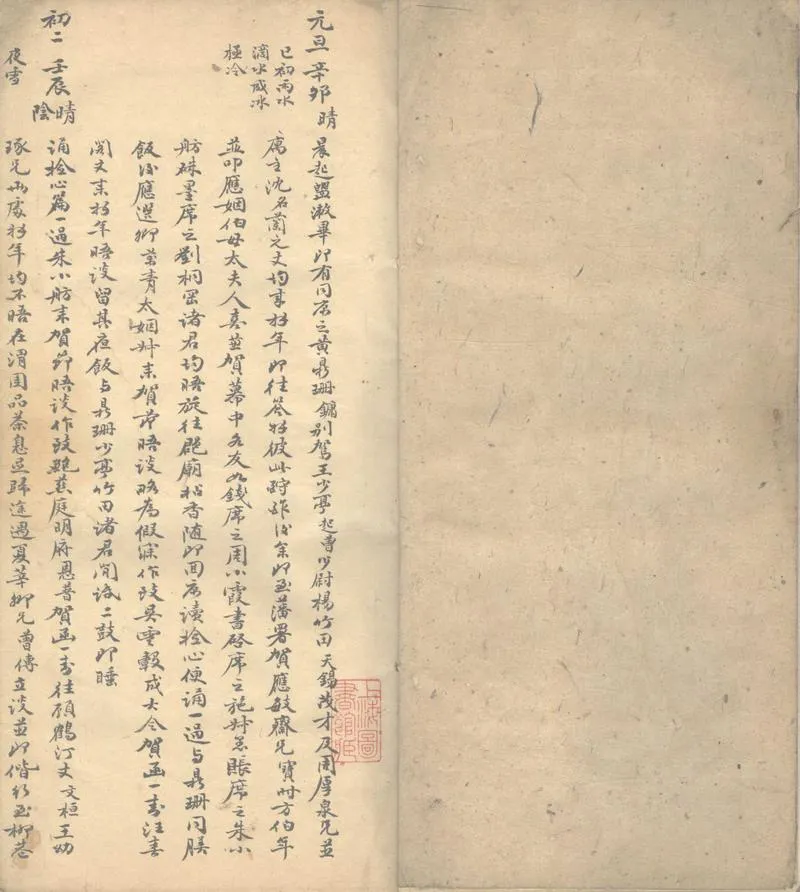 元旦辛卯晴
巳初雨水
滴水成冰
極冷
晨起盥漱畢即有同店之黃鼎珊鏞別駕王少亭起曹少尉楊竹田天錫茂才及周厚泉兄並
店主沈名蘭之丈均來拜年即往答拜彼此 後余即至藩署賀應敏齋兄寶時方伯年
並叩應姻伯母太夫人喜並賀幕中各友如錢席之周小霞書啓席之施 賬席之朱小
舫硃墨席之劉桐岡諸君均晤旋往 廟拈香隨即回店讀檢心便誦一過與鼎珊同朕
飯後應選卿 青太姻 來賀節晤談略爲假寐作致吳雲轂成大令賀函一封汪春
閣丈來拜年晤談留其夜飯與鼎珊少亭竹田諸君閒話二鼓即睡
初二壬辰晴
陰
夜雪
誦檢心篇一過朱小舫來賀節晤談作致鮑蕉庭明府恩普賀函一封往顧鶴汀丈文桓王幼
琢兄兩處拜年均不晤在渭園品茶息足歸途遇夏莘卿兄曹傳立談並即偕行至柳巷
上海圖
書館藏